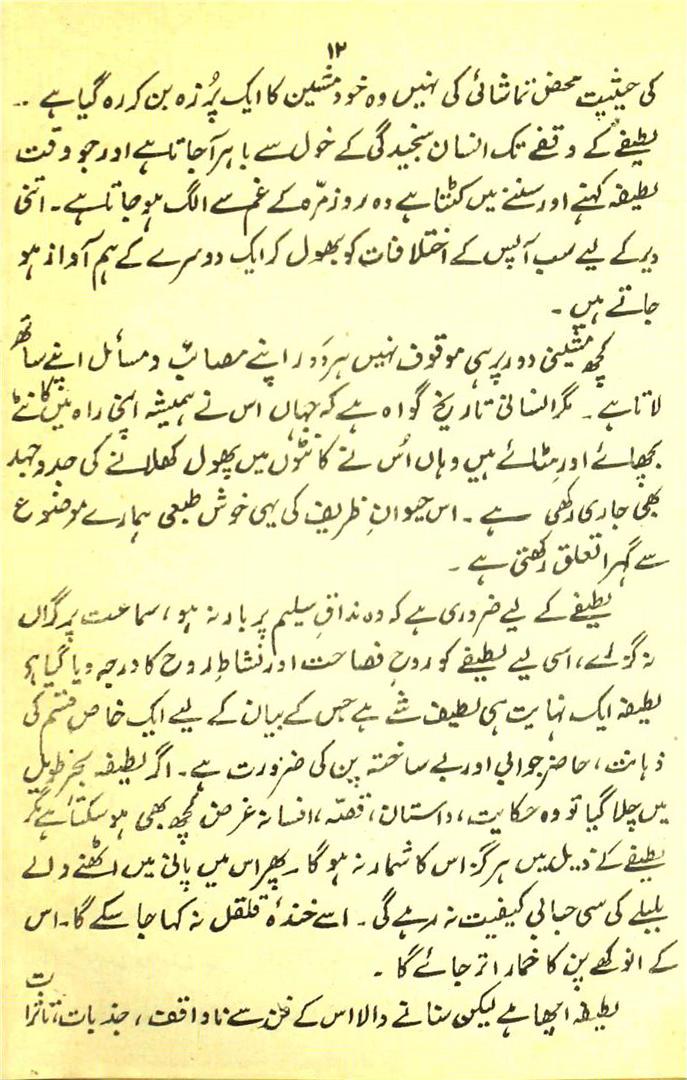 ۱۲
کی حیثیت محض تماشائی کی نہیں وہ خود مشین کا ایک پُرزہ بن کر رہ گیا ہے ..
لطیفے کے وقفے تک انسان سنجیدگی کے خول سے باہر آ جاتا ہے اور جو وقت
لطیفہ کہنے اور سننے میں کٹتا ہے وہ روزمرّہ کے غم سے الگ ہو جاتا ہے ۔ اتنی
دیر کے لیے سب آپس کے اختلافات کو بھول کر ایک دوسرے کے ہم آواز ہو
جاتے ہیں ۔
کچھ مشینی دور پر ہی موقوف نہیں ہر دَور اپنے مصائب و مسائل اپنے ساتھ
لاتا ہے ۔ مگر انسانی تاریخ گواہ ہے کہ جہاں اس نے ہمیشہ اپنی راہ میں کانٹے
بچھائے اور ہٹائے ہیں وہاں اُس نے کانٹوں میں پھول کھلانے کی جدوجہد
بھی جاری رکھی ہے ۔ اس حیوانِ ظریف کی یہی خوش طبعی ہمارے موضوع
سے گہرا تعلق رکھتی ہے ۔
لطیفے کے لیے ضروری ہے کہ وہ مذاقِ سلیم پر بار نہ ہو ، سماعت پر گراں
نہ گزرے ، اسی لیے لطیفے کو روحِ فصاحت اور نشاطِ روح کا درجہ دیا گیا ہے
لطیفہ ایک نہایت ہی لطیف شے ہے جس کے بیان کے لیے ایک خاص قسم کی
ذہانت ، حاضر جوابی اور بے ساختہ پن کی ضرورت ہے ۔ اگر لطیفہ بحرِ طویل
میں چلا گیا تو وہ حکایت ، داستان ، قصّہ ، افسانہ غرض کچھ بھی ہو سکتا ہے مگر
لطیفے کے ذیل میں ہرگز اس کا شمار نہ ہوگا ۔ پھر اس میں پانی میں اٹھنے والے
بلبلے کی سی حبابی کیفیت نہ رہے گی ۔ اسے خندۂ قلقل نہ کہا جا سکے گا ۔ اس
کے انوکھے پن کا خمار اتر جائے گا ۔
لطیفہ اچھا ہے لیکن سنانے والا اس کے فن سے ناواقف ، جذبات ، تاثرات